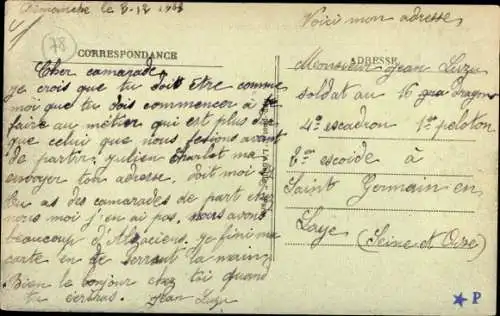 Dimanche le 2-12 1928
Voici mon adresse
78
CORRESPONDANCE
ADRESSE
Cher camarade,
je crois que tu doit être comme
moi que tu dois commencer à te
faire au métier qui est plus dur
que celui que nous fesions avant
de partir, julien Charlot ma
envoyer ton adresse, doit moi
tu as des camarades de part chez
nous moi j'en ai pas, nous avons
beaucoup d'Alsaciens. je fini ma
carte en te serrant la main,
Bien le bonjour chez toi quand
tu ecriras. Jean Luzu
Monsieur Jean Luzu
soldat au 16 dragons
4e escadron 1er peloton
2eme escoide à
Saint Germain en
Laye (Seine et Oise)
P